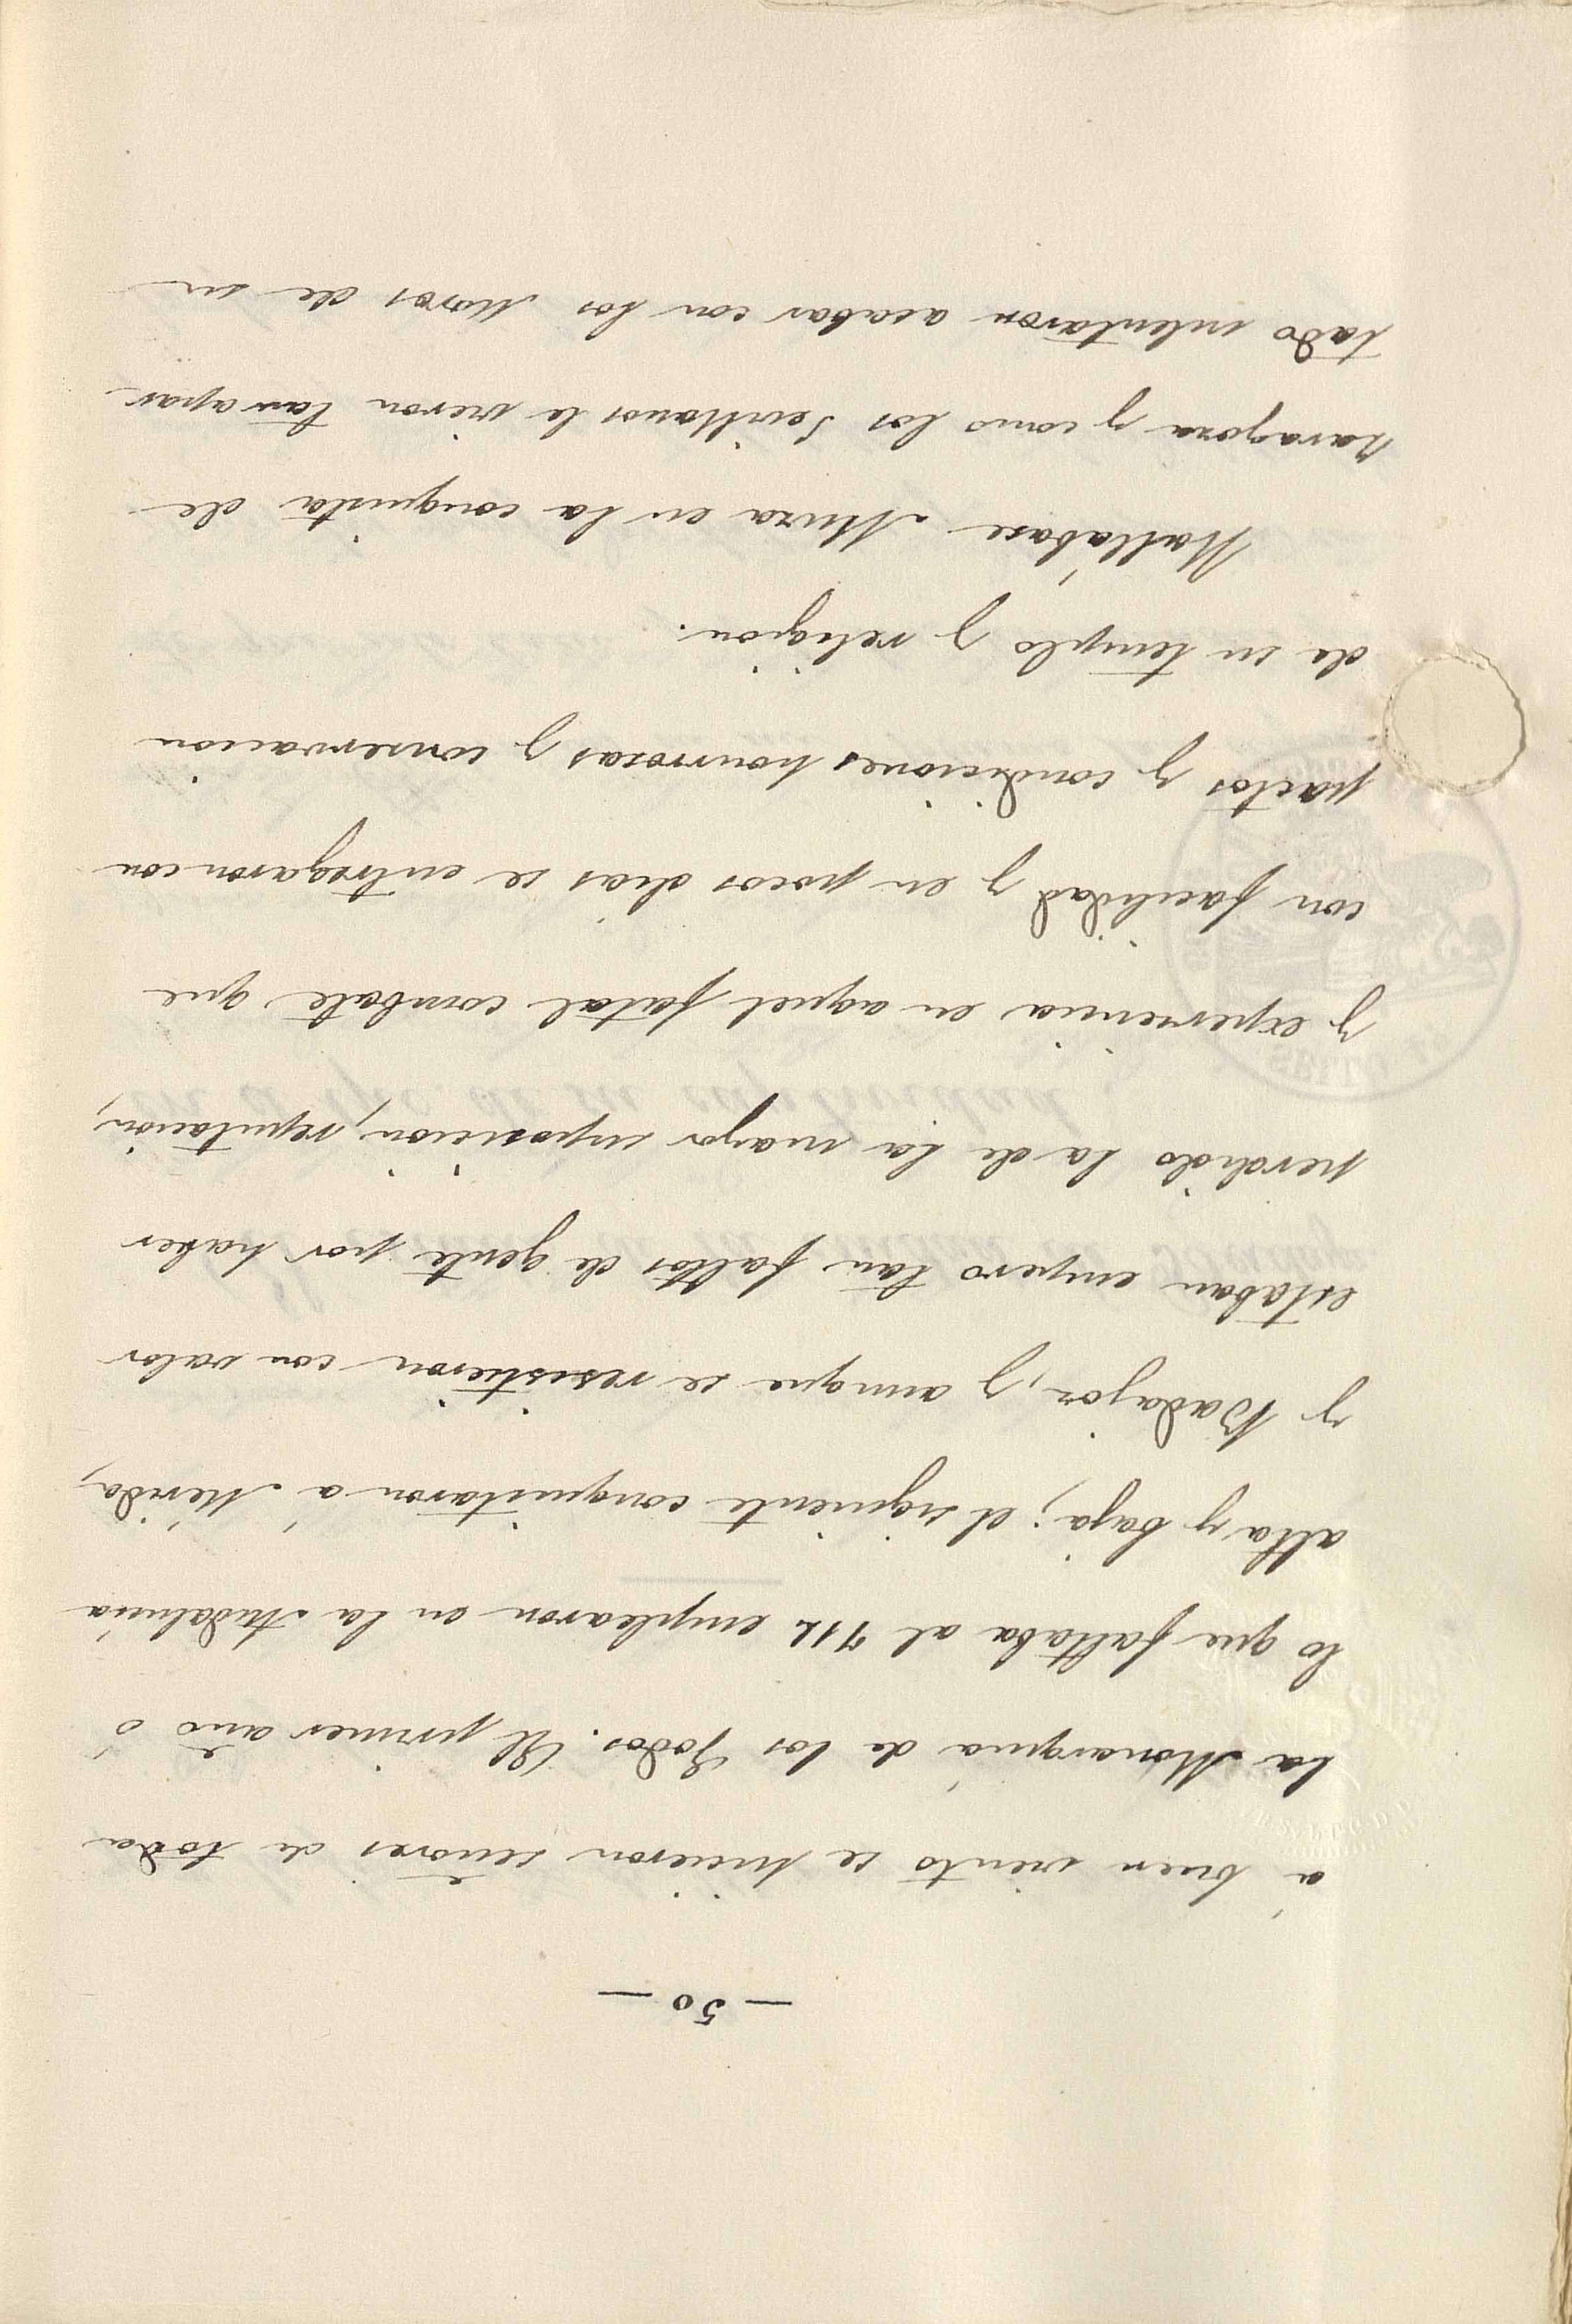 — 50 —
á buen viento se hicieron señores de toda
la Monarquía de los Godos. El primer año ó
lo que faltaba al 712 emplearon en la Andalucia
alta y baja; el siguiente conquistaron á Mérida,
y Badajoz, y aunque se resistieron con valor
estaban empero tan faltos de gente por haber
perdido la de la mayor suposicion, reputacion,
y experiencia en aquel fatal combate que
con facilidad y en pocos dias se entregaron con
pactos y condiciones honrrosas y conservacion
de su templo y religion.
Hallábase Muza en la conquista de
Zaragoza y como los Sevillanos le vieron tan apar-
tado intentaron acabar con los Moros de su